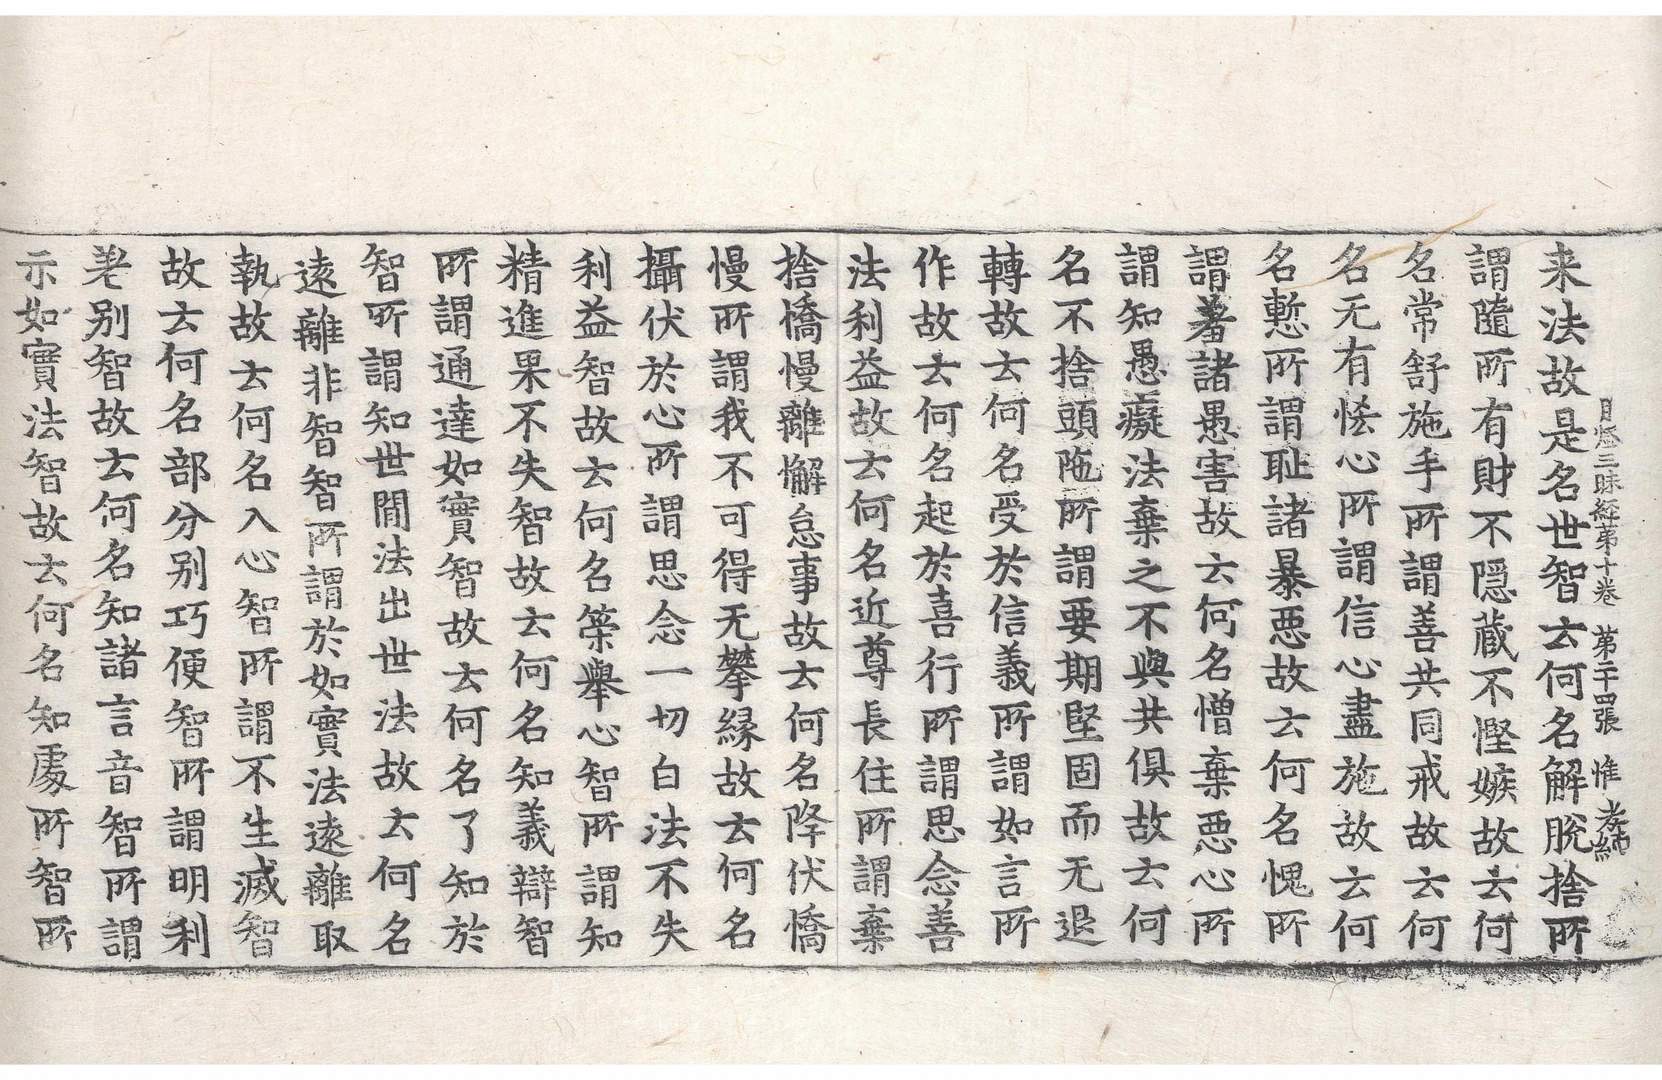 月燈三昧經第十卷 第二十四張 惟
来法故是名世智云何名解脫捨所
謂隨所有財不隱藏不慳嫉故云何
名常舒施手所謂善共同戒故云何
名无有恡心所謂信心盡施故云何
名慙所謂恥諸暴惡故云何名愧所
謂羞諸愚害故云何名憎棄惡心所
謂知愚癡法棄之不與共俱故云何
名不捨頭陁所謂要期堅固而无退
轉故云何名受於信義所謂如言所
作故云何名起於喜行所謂思念善
法利益故云何名近尊長住所謂棄
捨憍慢離懈怠事故云何名降伏憍
慢所謂我不可得无攀緣故云何名
攝伏於心所謂思念一切白法不失
利益智故云何名策舉心智所謂知
精進果不失智故云何名知義辯智
所謂通達如實智故云何名了知於
智所謂知世間法出世法故云何名
遠離非智智所謂於如實法遠離取
執故云何名入心智所謂不生滅智
故云何名部分別巧便智所謂明利
差別智故云何名知諸言音智所謂
示如實法智故云何名知處所智所